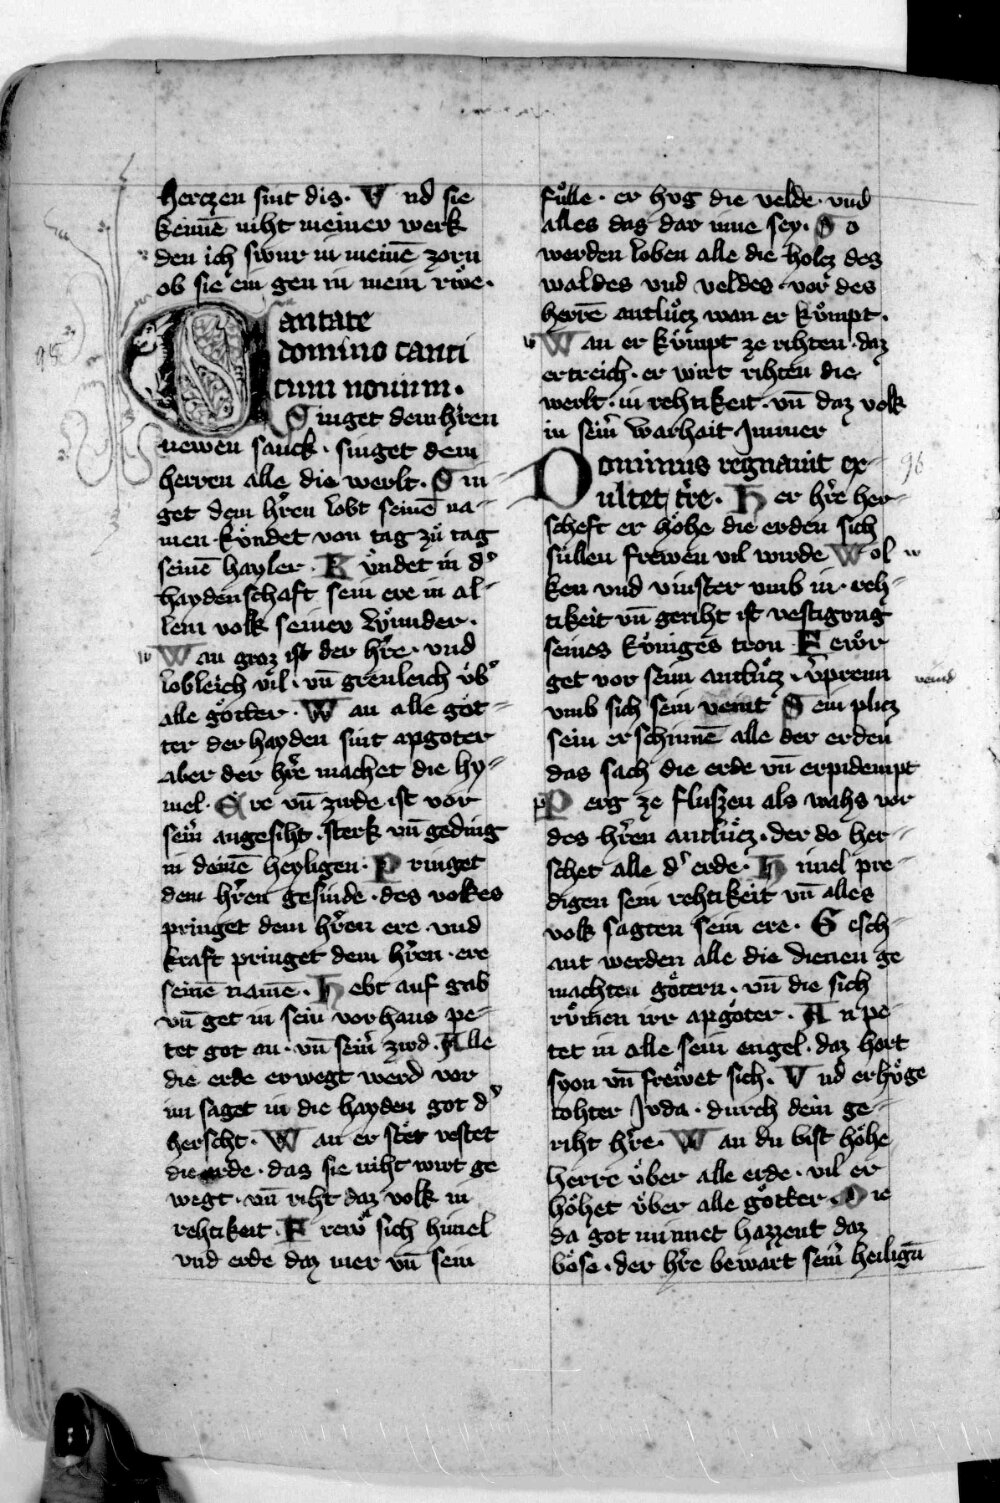 herczen sint dis. Vnd sie
kennē niht meiner werk
den ich swur in meinē zorn
ob sie ein gen in mein rwͦe.
Cantate
domino canti
cum nouum.
Singet dem hr̄en
newen sanck. singet dem
herren alle die werlt. Sin-
get dem hr̄en lobt seinē na-
men kuͤndet von tag zuͦ tag
seinē hayler. Kuͤndet in dˢ
haydenschaft sein ere in al-
lem volk seiner Wunder.
Wan groz ist der hr̄e. vnd
lobleich vil. vn̄ greuleich uͤbˢ
alle goͤtter. Wan alle goͤt-
ter der hayden sint apgoter
aber der hr̄e machet die hy-
mel. Ere vn̄ zirde ist vor
seim̄ angesiht. sterk vn̄ geding
in deinē heyligen. Pringet
dem hr̄en gesinde. des volkes
pringet dem hr̄en ere vnd
kraft pringet dem hr̄en. ere
seinē namē. Hebt auf gab
vn̄ get in sein vorhaus pe-
tet got an. vn̄ seim̄ zird. Alle
die erde erwegt werd vor
im saget in die hayden got dˢ
herscht. Wan er stet vestet
die erde. das sie niht wirt ge
wegt. vn̄ riht daz volk in
rehtikeit. Frew sich himel
vnd erde daz mer vn̄ sein
fuͤlle. er hvg die velde. vnd
alles das dar inne sey. So
werden loben alle die holcz des
waldes vnd veldes. vor des
herrē antluͤcz wan er kuͤmpt.
w Wan er kuͤmpt ze rihten daz
ertreich. er wirt rihten die
werlt. in rehtikeit. vn̄ daz volk
in seim̄ warhait Immer
Dominus regnauit ex- 96
ultet tr̄re. Her hr̄e her-
scheft er hoͤhe die erden sich
suͤllen frewen vil wirde Wol w
ken vnd vinster vmb in. reh-
tikeit vn̄ geriht ist vestigung
seines kuͤniges tron. Fewͤr
get vor seim antluͤcz. v̄prenn
vmb sich sein veint Sein plicz
sein erschinnē alle der erden
das sach die erde vn̄ erpidempt
p Perg ze fluszen als wahs vor
des hr̄en antluͤcz. der do her-
schet alle dˢ erde. Himel pre-
digen sein rehtikeit vn̄ alles
volk sagten sein ere. Gesch-
ant werden alle die dienen ge
machten goͤtern. vn̄ die sich
ruͤmen irr apgoter. Anpe-
tet in alle sein engel. daz hort
syon vn̄ frewet sich. Vnd erhoͤge
tohter Jvda. durch dein ge-
riht hr̄e. Wan du bist hoͤhe
herre uͤber alle erde. vil er
hoͤhet uͤber alle goͤtter. Die
da got minnet hazzent daz
boͤse. der hr̄e bewart seim̄ heiligū